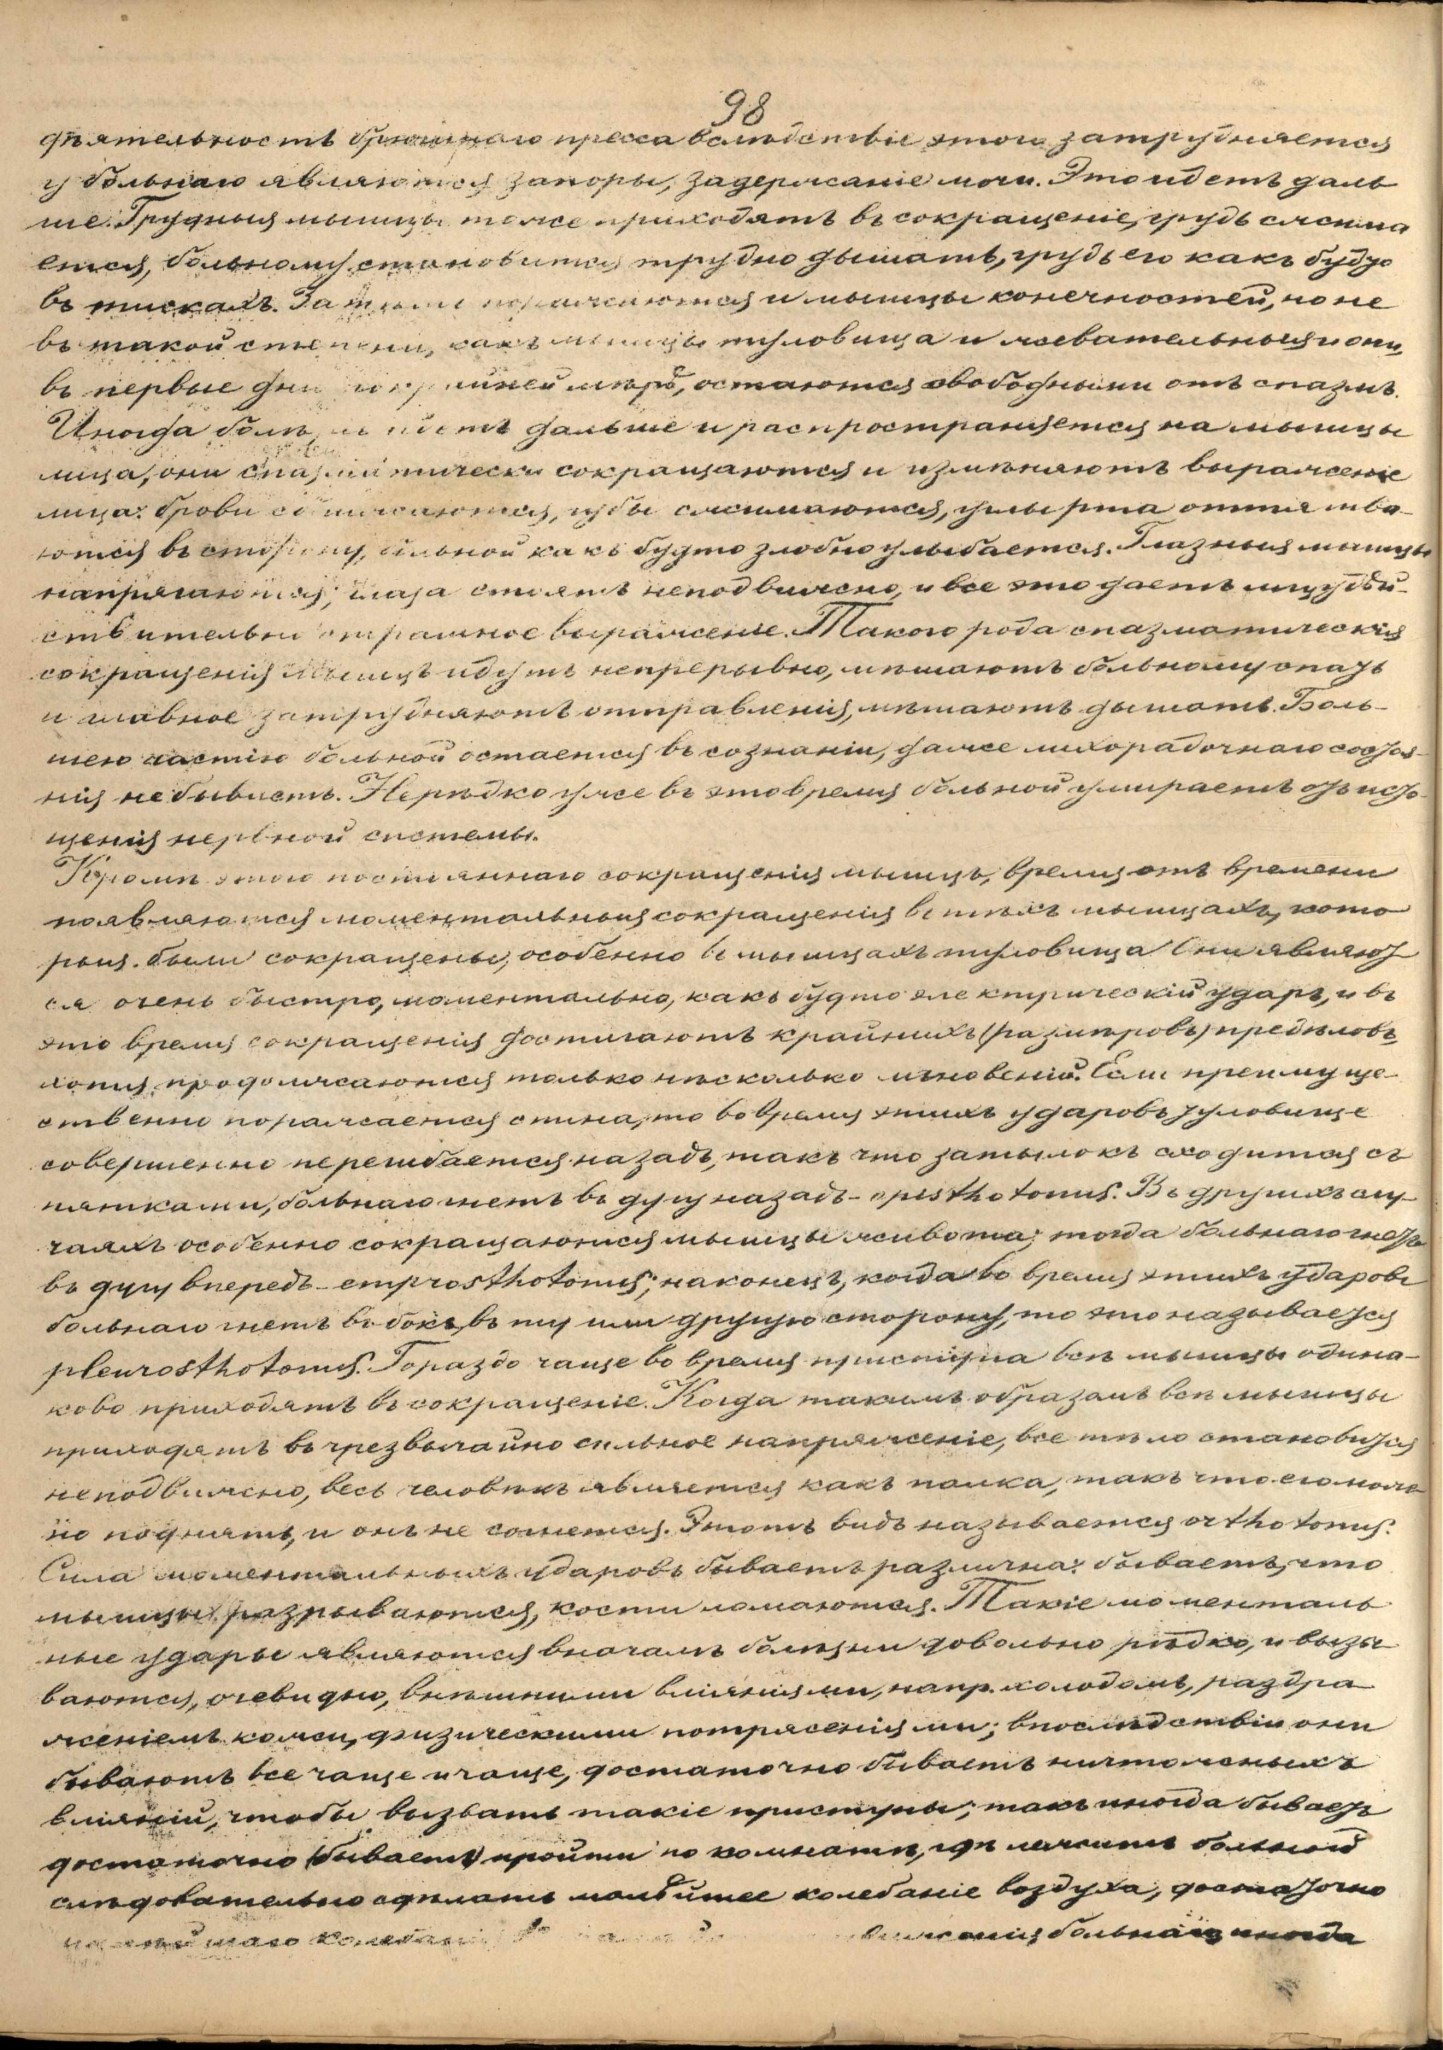 98
дѣятельность брюшнаго пресса вслѣдствіе этого затрудняется
у больнаго являются запоры, задержаніе мочи. Это идетъ даль
ше. Грудныя мышцы тоже приходятъ въ сокращеніе, грудь сжима
ется, больному становится трудно дышать, грудь его какъ будто
въ тискахъ. Затѣмъ поражаются и мышцы конечностей, но не
въ такой степени, какъ мышцы туловища и жевательныя и они,
въ первые дни по крайней мѣрѣ, остаются свободными отъ спазмъ.
Иногда болѣзнь идетъ дальше и распространяется на мышцы
лица, они спазматически сокращаются и измѣняютъ выраженіе
лица: брови сближаются, губы сжимаются, углы рта оттягива-
ются въ сторону, больной какъ будто злобно улыбается. Глазныя мышцы
напрягаются, глаза стоятъ неподвижно, и все это даетъ лицу дѣй-
ствительно страшное выраженіе. Такого рода спазматическія
сокращенія мышцъ идутъ непрерывно, мѣшаютъ больному спать
и главное затрудняютъ отправленія, мѣшаютъ дышать. Боль-
шею частію больной остается въ сознаніи, даже лихорадочнаго состоя-
нія не бываетъ. Нерѣдко уже въ это время больной умираетъ отъ исто-
щенія нервной системы.
Кромѣ этого постояннаго сокращенія мышцъ, время отъ времени
появляются моментальныя сокращенія въ тѣхъ мышцахъ, кото
рыя были сокращены, особенно въ мышцахъ туловища Они являют
ся очень быстро, моментально, какъ будто электрическій ударъ, и въ
это время сокращенія достигаютъ крайнихъ (размѣровъ) предѣловъ
хотя продолжаются только нѣсколько мгновеній. Если преимуще-
ственно поражается спина, то во время этихъ ударовъ туловище
совершенно перегибается назадъ, такъ что затылокъ сходится съ
пятками, больнаго гнетъ въ дугу назадъ - opisthotonus. Въ другихъ слу-
чаяхъ особенно сокращаются мышцы живота; тогда больнаго гнетъ
въ дугу впередъ - emprosthotonus; наконецъ, когда во время этихъ ударовъ
больнаго гнетъ въ бокъ, въ ту или другую сторону, то это называется
pleurosthotonus. Гораздо чаще во время приступа всѣ мышцы одина-
ково приходятъ въ сокращеніе. Когда такимъ образомъ всѣ мышцы
приходятъ въ чрезвычайно сильное напряженіе, все тѣло становится
неподвижно, весь человѣкъ является какъ палка, такъ что его мож
но поднять, и онъ не согнется. Этотъ видъ называется orthotonus.
Сила моментальныхъ ударовъ бываетъ различна: бываетъ, что
мышцы разрываются, кости ломаются. Такіе моменталь
ные удары являются вначалѣ болѣзни довольно рѣдко, и вызы
ваются, очевидно, внѣшними вліяніями, напр. холодомъ, раздра
женіемъ кожи, физическими потрясеніями; впослѣдствіи они
бываютъ все чаще и чаще, достаточно бываетъ ничтожныхъ
вліяній, чтобы вызвать такіе приступы; такъ иногда бываетъ
достаточно (бываетъ) пройти по комнатѣ, гдѣ лежитъ больной
слѣдовательно сдѣлать малѣйшее колебаніе воздуха, достаточно
малѣйшаго колебанія больнаго иногда